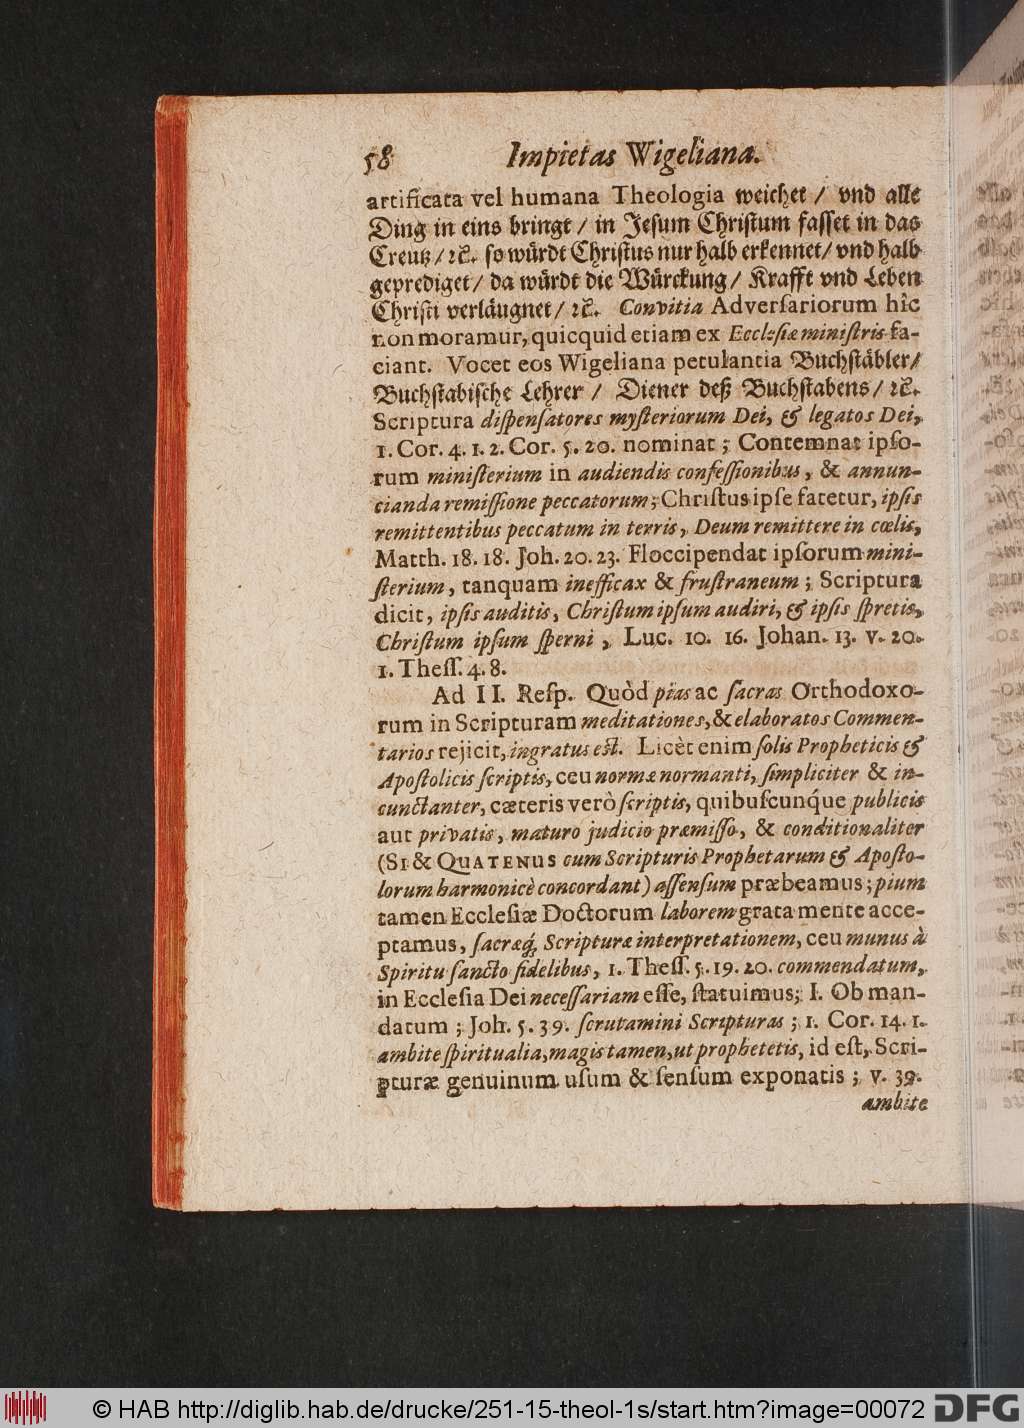 58 Impietas Wigeliana.
artificata vel humana Theologia weichet / vnd alle
Ding in eins bringt / in Jesum Christum fasset in das
Creutz / ꝛc. so würdt Christus nur halb erkennet / vnd halb
geprediget / da würdt die Würckung / Krafft vnd Leben
Christi verläugnet / ꝛc. Convitia Adversariorum hîc
non moramur, quicquid etiam ex Ecclesiæ ministris fa-
ciant. Vocet eos Wigeliana petulantia Buchstäbler /
Buchstabische Lehrer / Diener deß Buchstabens / ꝛc.
Scriptura dispensatores mysteriorum Dei, & legatos Dei,
1. Cor. 4. 1. 2. Cor. 5. 20. nominat; Contemnat ipso-
rum ministerium in audiendis confessionibus, & annun-
cianda remissione peccatorum; Christus ipse fatetur, ipsis
remittentibus peccatum in terris, Deum remittere in cœlis,
Matth. 18. 18. Joh. 20. 23. Floccipendat ipsorum mini-
sterium, tanquam inefficax & frustraneum; Scriptura
dicit, ipsis auditis, Christum ipsum audiri, & ipsis spretis,
Christum ipsum sperni, Luc. 10. 16. Johan. 13. v. 20.
1. Thess. 4. 8.
Ad II. Resp. Quòd pias ac sacras Orthodoxo-
rum in Scripturam meditationes, & elaboratos Commen-
tarios rejicit, ingratus est. Licèt enim solis Propheticis &
Apostolicis scriptis, ceu normæ normanti, simpliciter & in-
cunctanter, cæteris verò scriptis, quibuscunq́ue publicis
aut privatis, maturo judicio præmisso, & conditionaliter
(SI & QUATENUS cum Scripturis Prophetarum & Aposto-
lorum harmonicè concordant) assensum præbeamus; pium
tamen Ecclesiæ Doctorum laborem grata mente acce-
ptamus, sacræq́; Scripturæ interpretationem, ceu munus à
Spiritu sancto fidelibus, 1. Thess. 5. 19. 20. commendatum,
in Ecclesia Dei necessariam esse, statuimus; I. Ob man-
datum; Joh. 5. 39. scrutamini Scripturas; 1. Cor. 14. 1.
ambite spiritualia, magis tamen, ut prophetetis, id est, Scri-
pturæ genuinum usum & sensum exponatis; v. 39.
ambite
© HAB http://diglib.hab.de/drucke/251-15-theol-1s/start.htm?image=00072
DFG